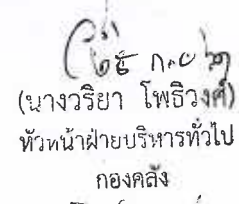 (นางวริยา โพธิวงศ์)
หัวหน้าฝ่ายบริหารทั่วไป
กองคลัง